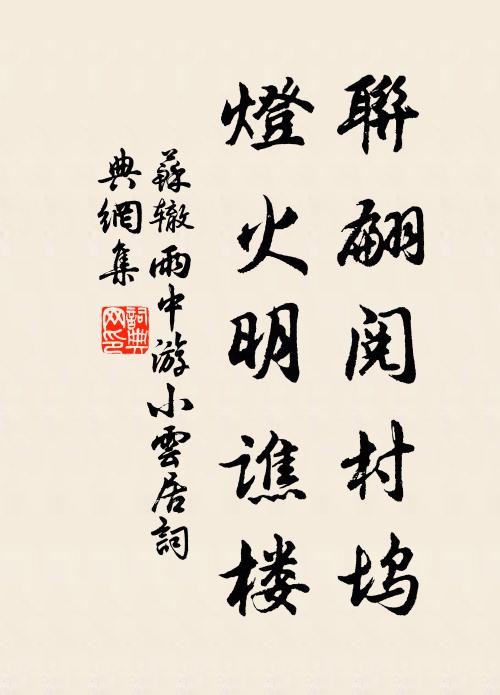 聯翩閱村塢
燈火明譙楼
蘇辙雨中游小雲居詞
典網集
詞典网印